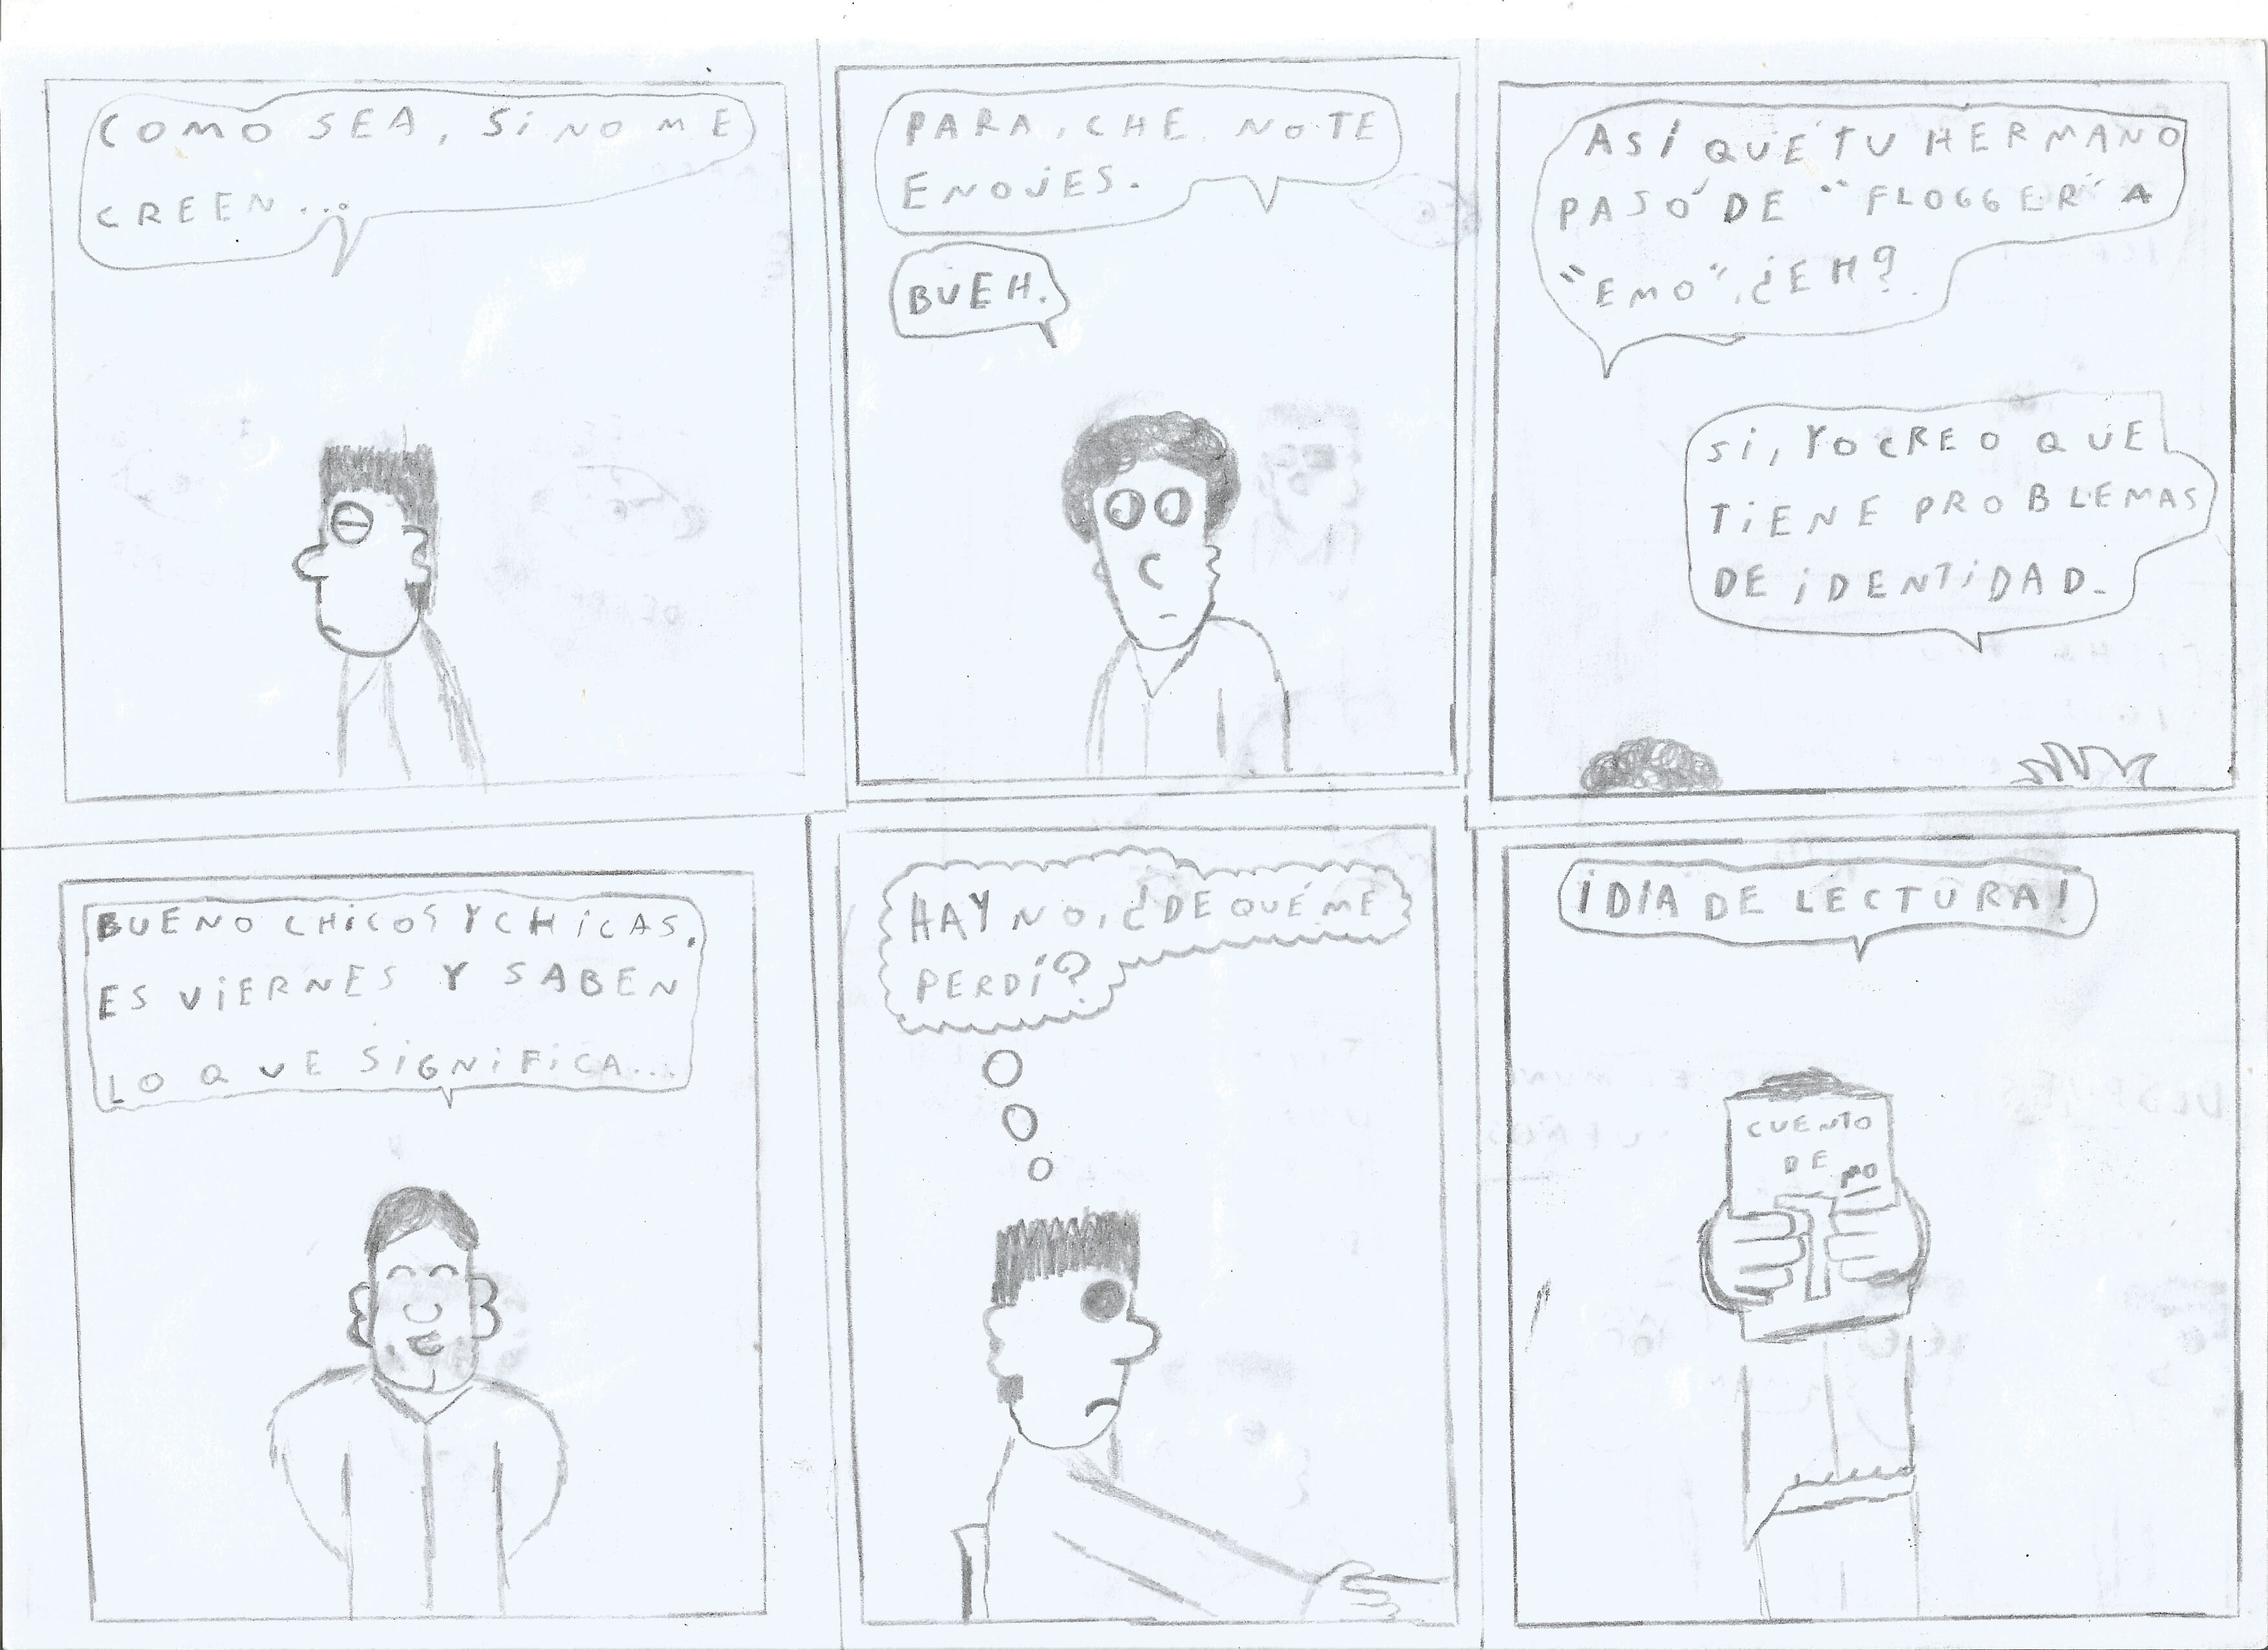 COMO SEA, SI NO ME
CREEN...
PARA, CHE NO TE
ENOJES.
BUEH.
ASÍ QUE TU HERMANO
PASÓ DE "FLOGGER" A
"EMO", ¿EH?
SI, YO CREO QUE
TIENE PROBLEMAS
DE IDENTIDAD.
BUENO CHICOS Y CHICAS,
ES VIERNES Y SABEN
LO QUE SIGNIFICA...
HAY NO, ¿DE QUÉ ME
PERDÍ?
¡DÍA DE LECTURA!
CUENTO
DE